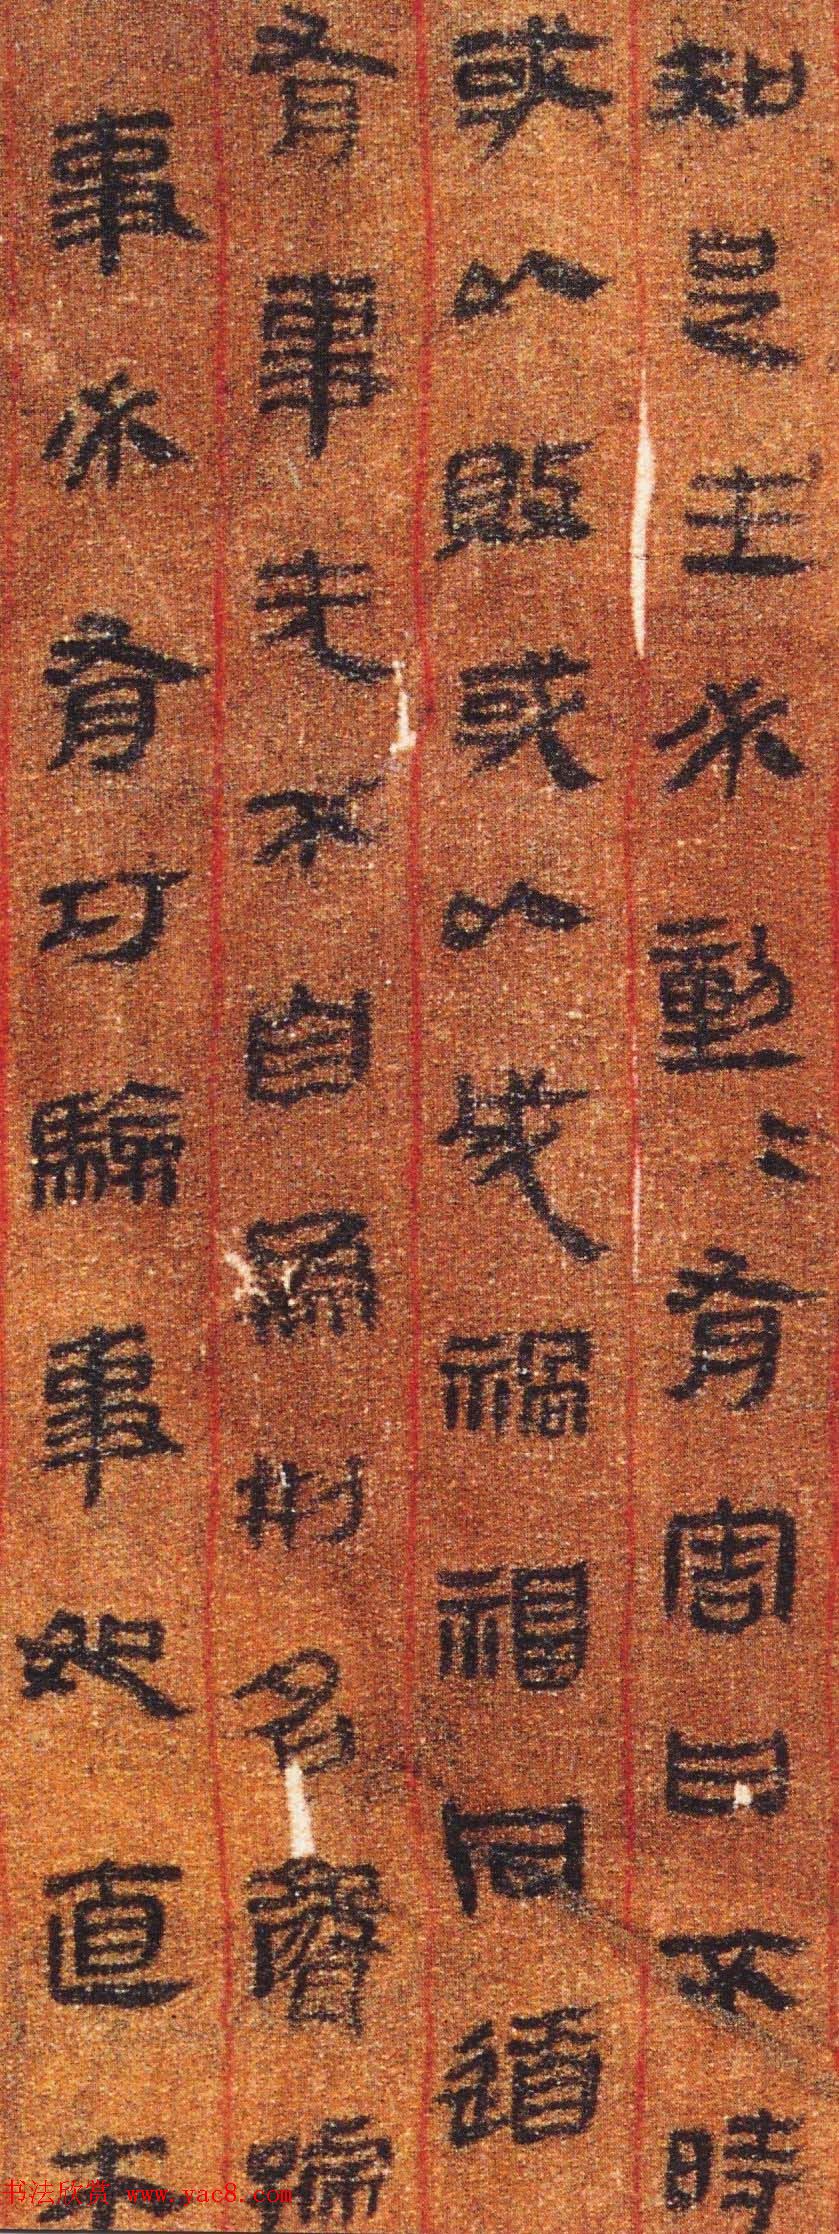 知足生必動〻有害曰不時
或以敗或以成禍福同道
有事无不自為刑名聲號
事必有巧驗事如直木
书法欣赏 www.yac8.com